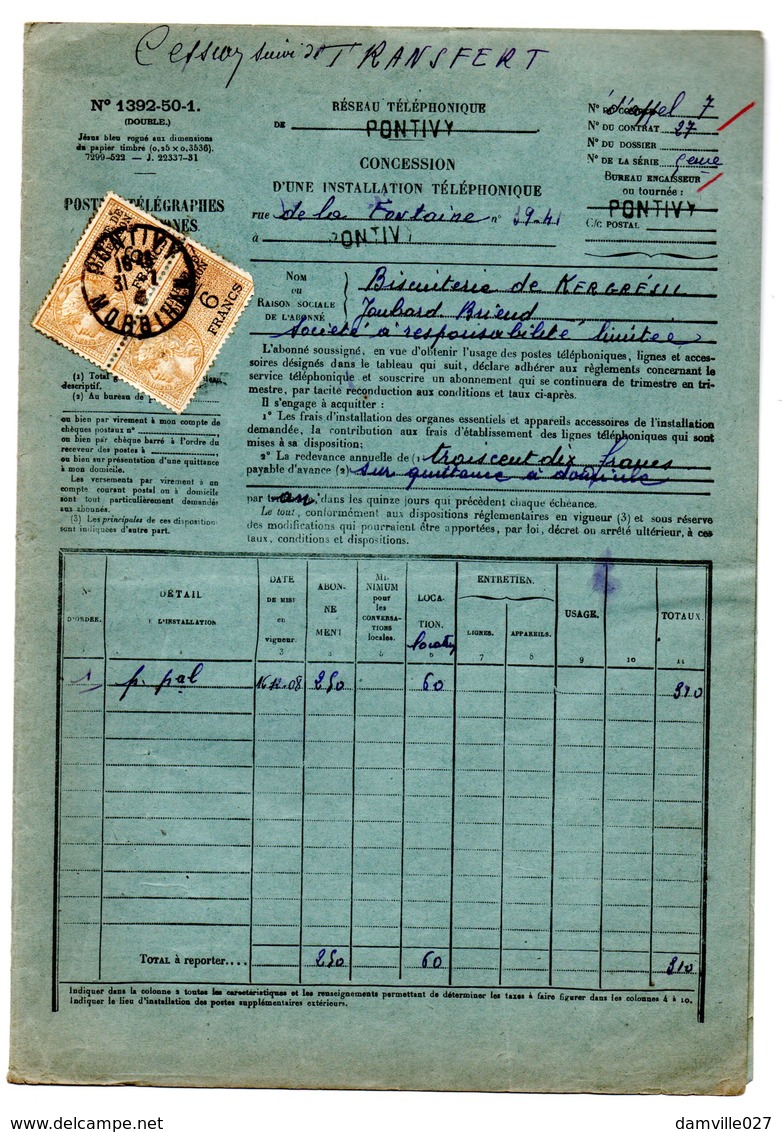 Cession suivi de TRANSFERT
N° 1392-50-1.
(DOUBLE.)
Jésus bleu rogné aux dimensions
du papier timbré (0,25 x 0,3536).
7299-522 — J. 22337-31
POSTES TÉLÉGRAPHES
RÉSEAU TÉLÉPHONIQUE
DE PONTIVY
CONCESSION
D'UNE INSTALLATION TÉLÉPHONIQUE
rue de la Fontaine n° 39-41
à PONTIVY
N° d'appel 7
N° DU CONTRAT 27
N° DU DOSSIER
N° DE LA SÉRIE 5eme
BUREAU ENCAISSEUR
ou tournée :
PONTIVY
C/c POSTAL
PONTIVY
MORBIHAN
6 FRANCS
NOM
ou
RAISON SOCIALE
DE L'ABONNÉ
Biscuiterie de KERGRÉSIL
Joubard Briend
société à responsabilité limitée
L'abonné soussigné, en vue d'obtenir l'usage des postes téléphoniques, lignes et acces-
soires désignés dans le tableau qui suit, déclare adhérer aux règlements concernant le
service téléphonique et souscrire un abonnement qui se continuera de trimestre en tri-
mestre, par tacite reconduction aux conditions et taux ci-après.
Il s'engage à acquitter :
1° Les frais d'installation des organes essentiels et appareils accessoires de l'installation
demandée, la contribution aux frais d'établissement des lignes téléphoniques qui sont
mises à sa disposition;
2° La redevance annuelle de (1) trois cent dix francs
payable d'avance (2) sur quittance à domicile
par an, dans les quinze jours qui précèdent chaque échéance.
Le tout, conformément aux dispositions réglementaires en vigueur (3) et sous réserve
des modifications qui pourraient être apportées, par loi, décret ou arrêté ultérieur, à ces
taux, conditions et dispositions.
(1) Total
descriptif.
(2) Au bureau de
ou bien par virement à mon compte de
chèques postaux n°
ou bien par chèque barré à l'ordre du
receveur des postes à
ou bien sur présentation d'une quittance
à mon domicile.
Les versements par virement à un
compte courant postal ou à domicile
sont tout particulièrement demandés
aux abonnés.
(3) Les principales de ces dispositions
sont indiquées d'autre part.
N°
D'ORDRE.
DÉTAIL
DE L'INSTALLATION
DATE
DE MISE
en
vigueur.
ABON-
NE
MENT
MI-
NIMUM
pour
les
CONVERSA-
TIONS
locales.
LOCA-
TION.
ENTRETIEN.
LIGNES.
APPAREILS.
USAGE.
TOTAUX.
1 2 3 4 5 6 7 8 9 10 11
1 p. pal 16.12.08 250 60 310
TOTAL à reporter.... 250 60 310
Indiquer dans la colonne 2 toutes les caractéristiques et les renseignements permettant de déterminer les taxes à faire figurer dans les colonnes 4 à 10.
Indiquer le lieu d'installation des postes supplémentaires extérieurs.
damville027